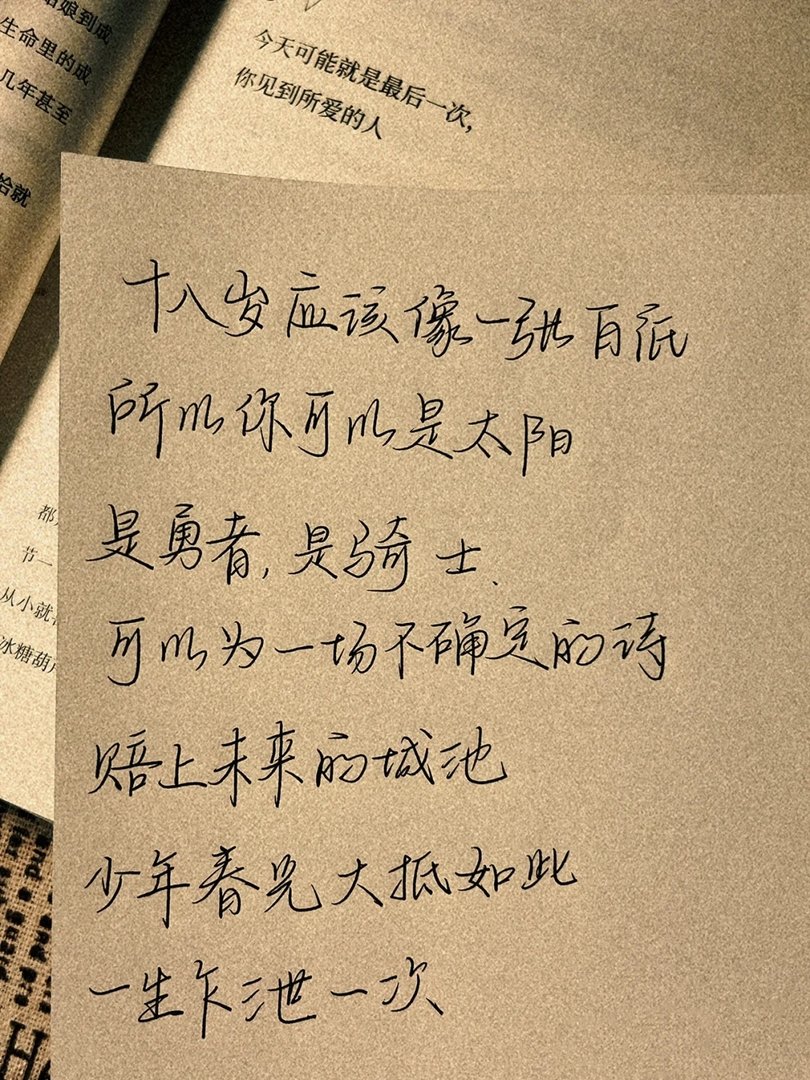 姑娘到成
生命里的成
几年甚至
恰就
今天可能就是最后一次，
你见到所爱的人
十八岁应该像一张白纸
所以你可以是太阳
是勇者，是骑士、
可以为一场不确定的诗
赔上未来的城池
少年春光大抵如此
一生乍泄一次
节一
从小就
冰糖葫